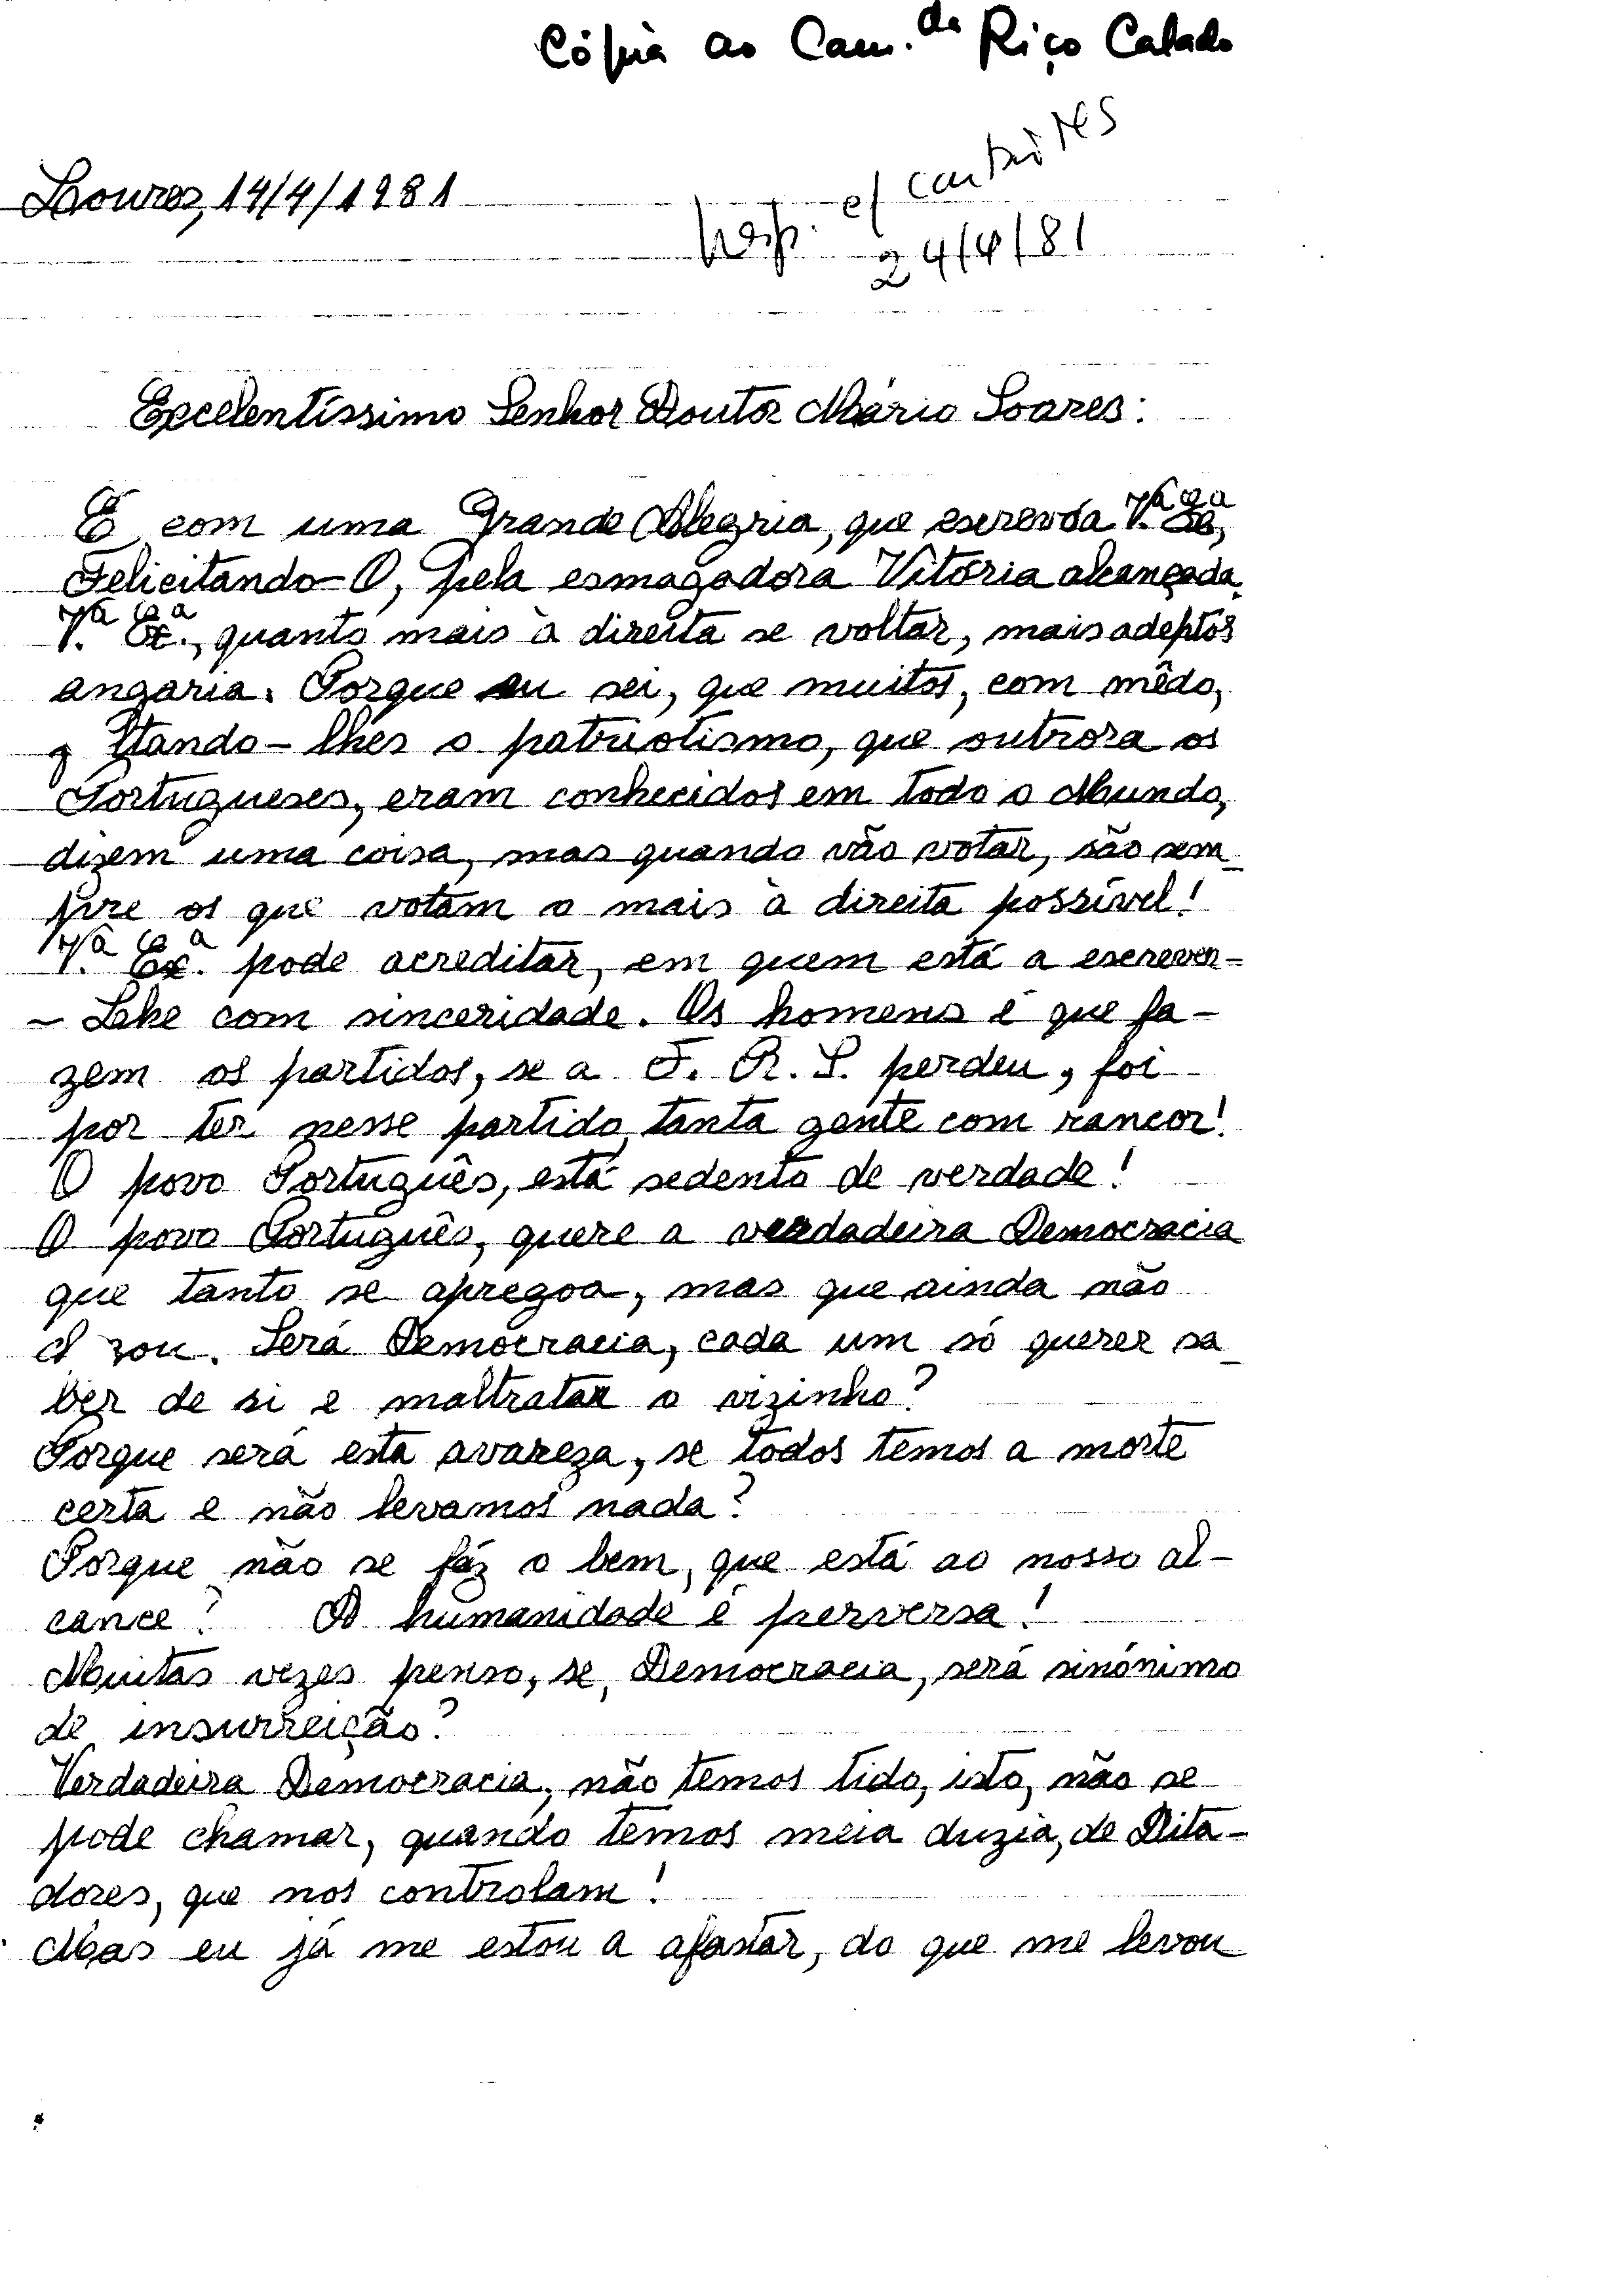 Cópia ao Cam.da Riço Calado
Loures, 14/4/1981
Resp. c/ cartões
24/4/81
Excelentíssimo Senhor Doutor Mário Soares:
É com uma Grande Alegria, que escrevo a V.ª Ex.ª,
Felicitando-O, pela esmagadora Vitória alcançada.
V.ª Ex.ª, quanto mais à direita se voltar, mais adeptos
angaria. Porque eu sei, que muitos, com mêdo,
ltando-lhes o patriotismo, que outrora os
Portugueses, eram conhecidos em todo o Mundo,
dizem uma coisa, mas quando vão votar, são sem-
pre os que votam o mais à direita possível!
V.ª Ex.ª pode acreditar, em quem está a escrever-
-Lhe com sinceridade. Os homens é que fa-
zem os partidos, se a F. R. S. perdeu, foi
por ter nesse partido, tanta gente com rancor!
O povo Português, está sedento de verdade!
O povo Português, quere a verdadeira Democracia
que tanto se apregoa, mas que ainda não
zou. Será Democracia, cada um só querer sa-
ber de si e maltratar o vizinho?
Porque será esta avareza, se todos temos a morte
certa e não levamos nada?
Porque não se fáz o bem, que está ao nosso al-
cance? A humanidade é perversa!
Muitas vezes penso, se, Democracia, será sinónimo
de insurreição?
Verdadeira Democracia, não temos tido, isto, não se
pode chamar, quando temos meia duzia, de Dita-
dores, que nos controlam!
Mas eu já me estou a afastar, do que me levou